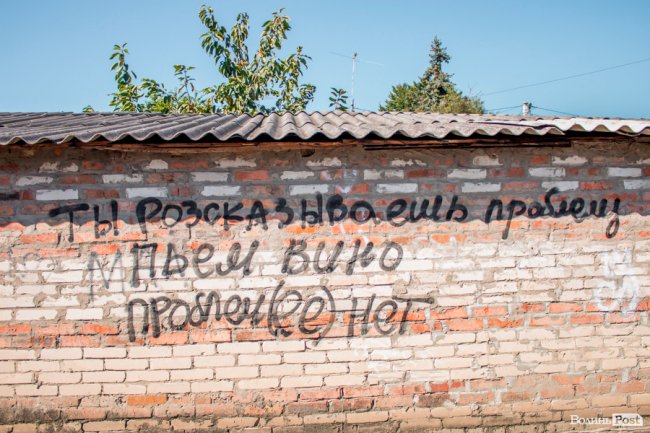 ты розсказываешь проблему
пьем вино
проблем(ее) нет
Волинь Post